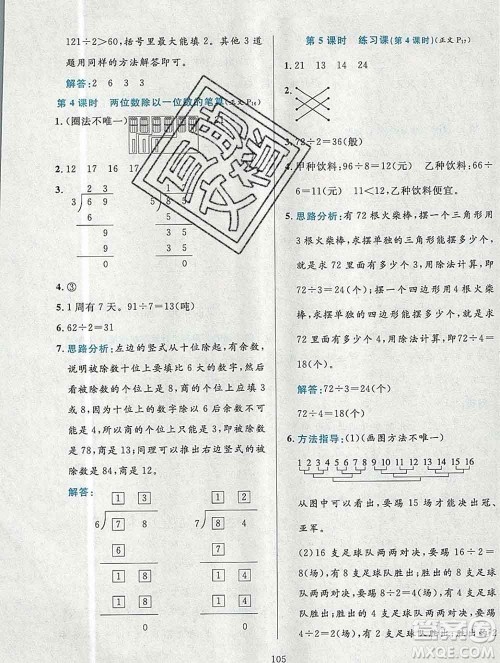 121÷2>60，括号里最大能填几第 3 道
题用同样的方法解答即可。
解答：2 6 3 3
第 4 课时 两位数除以一位数的笔算(正文 P₁₆)
1.(圈法不唯一)
2. 12 17 16
3.
2 3
3 6 9
6
9
9
0
5
8 5
0
4. ③
5. 1 周有 7 天。91÷7=13(吨)
6. 62÷2=31
7. 思路分析：左边的竖式从十位除起，有余数，
说明被除数十位上是要比 6 大的数字，然后
被除数的个位上是 8，商的个位上应填 3 才
能满足条件，用得出的余数 18 除以 6 没有余
数，所以可以推出被除数的十位是 7，被除数
是 78，商是 13；同理可以推出右边竖式的被
除数是 84，商是 12。
解答：
1 3
6 7 8
6
1 8
1 8
0
1 2
7 8 4
7
1 4
1 4
0
第 5 课时 练习课(第 4 课时)(正文 P₁₇)
1. 21 13 14 24
2.
3. 72÷2=36(般)
4. 甲种饮料：96÷8=12(元) 乙种饮料：66
÷6=11(元) 11<12，乙种饮料便宜。
5. 思路分析：有 72 根火柴棒，摆一个三角形用
3 根火柴棒，求摆单独的三角形能摆多少个，
就是求 72 里面有多少个 3，用除法计算，即
72÷3=24(个)；摆一个四边形用 4 根火柴
棒，求摆单独的四边形能摆多少个，就是求
72 里面有多少个 4，用除法计算，即 72÷4=
18(个)。
解答：72÷3=24(个)
72÷4=18(个)
6. 方法指导：(1)(画图方法不唯一)
1 2 3 4 5 6 7 8 9 10 11 12 13 14 15 16
从图中可以看出，要踢 15 场才能决出冠、
亚军。
(2)16 支足球队两两对决，要踢 16÷2=
8(场)，有 8 支足球队胜出；胜出的 8 支足球
队两两对决，要踢 8÷2=4(场)，有 4 支足球
队胜出；胜出的 4 支足球队两两对决，要踢
4÷2=2(场)，有 2 支足球队胜出；胜出的 2
105
作业帮
MXQE.COM